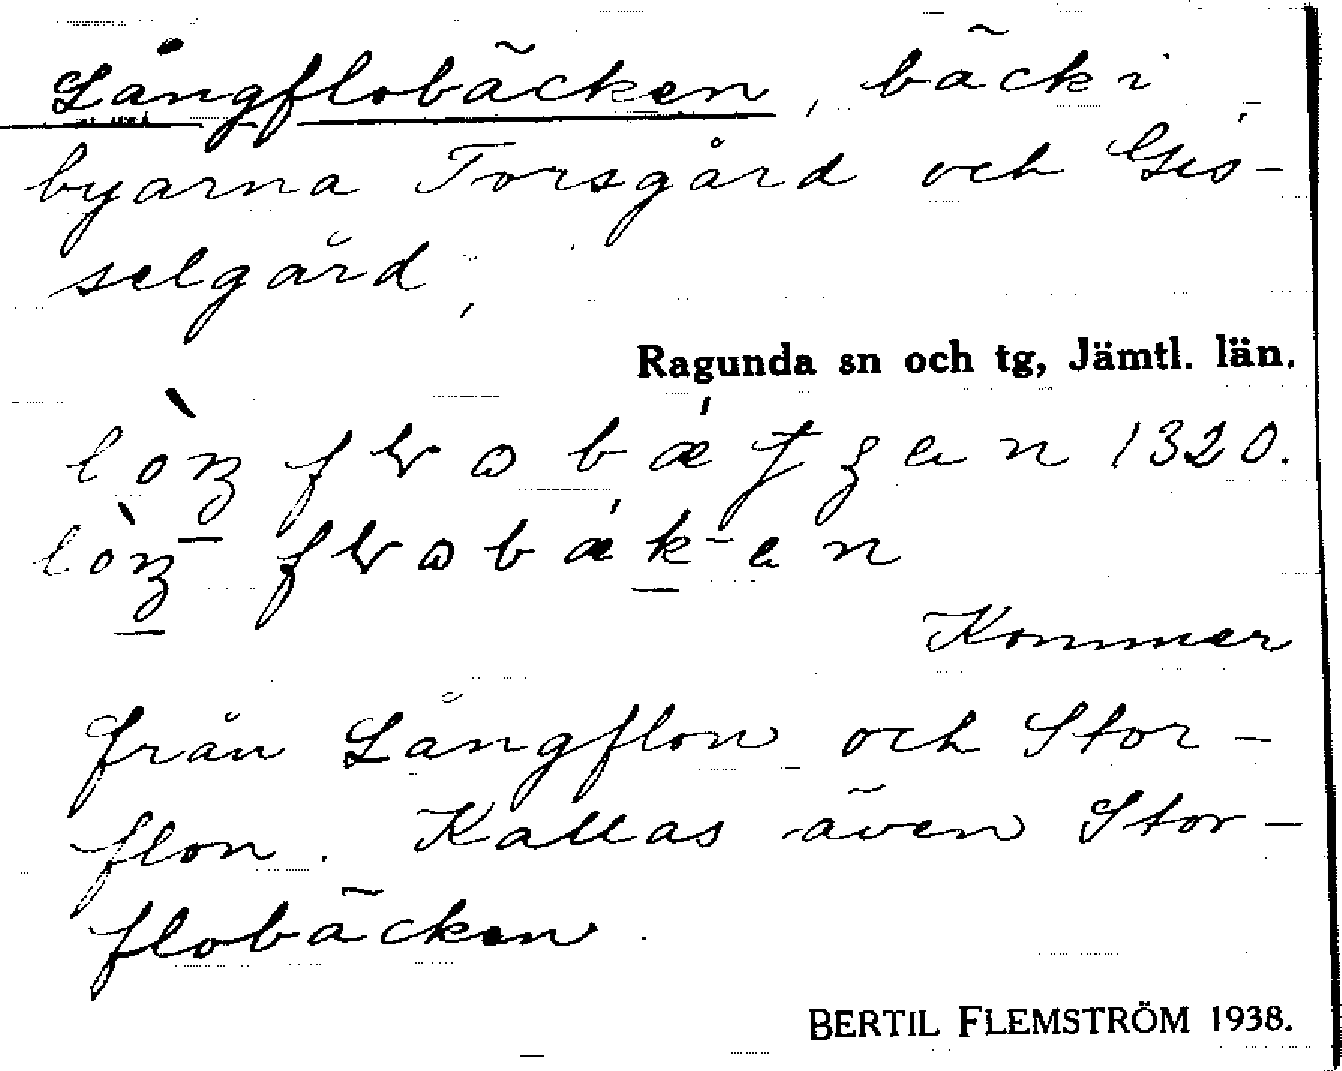 Långflobäcken, bäck i
byarna Torsgård och Gis-
selgård,
Ragunda sn och tg, Jämtl. län.
1320.
Kommer
från Långflon och Stor-
flon. Kallas även Stor-
flobäcken.
BERTIL FLEMSTRÖM 1938.